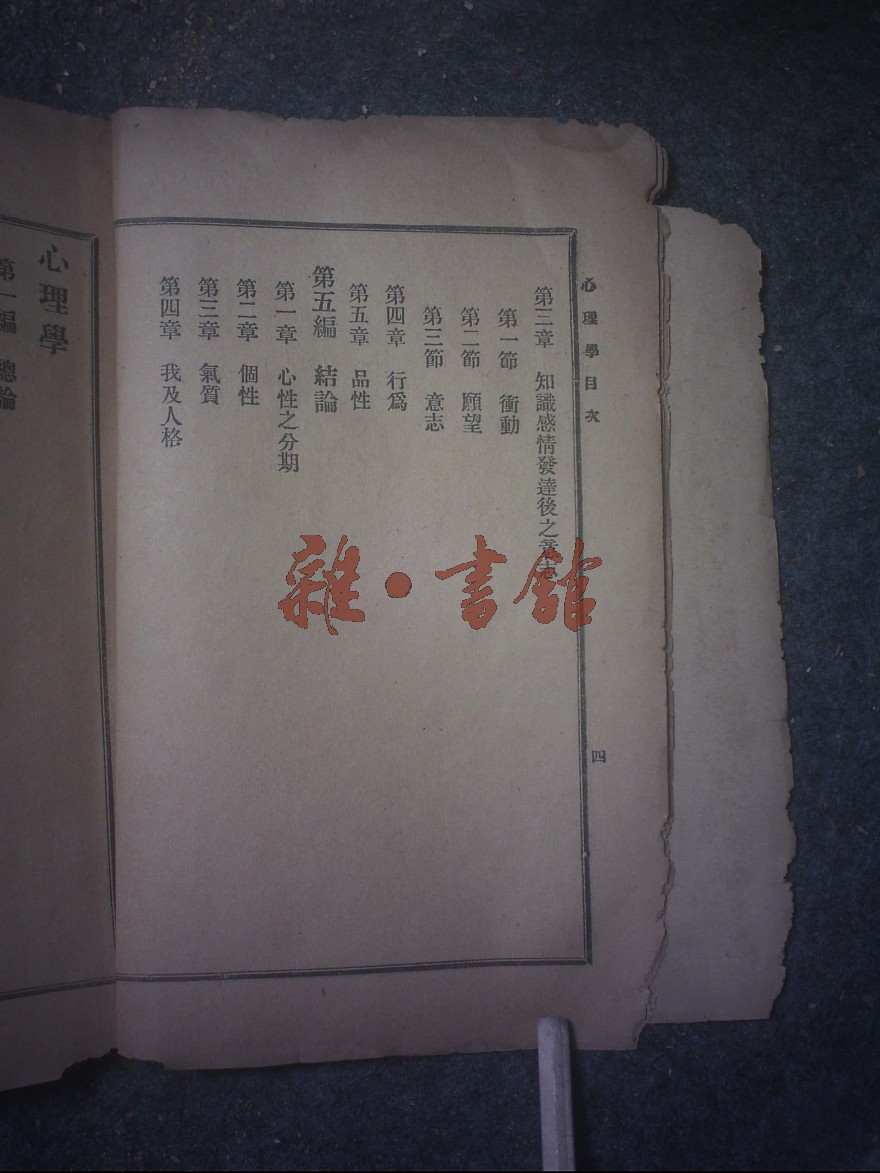 心理學目次
第三章　知識感情發達後之意志
第一節　衝動
第二節　願望
第三節　意志
第四章　行爲
第五章　品性
第五編　結論
第一章　心性之分期
第二章　個性
第三章　氣質
第四章　我及人格
四
心理學
第一編　總論
雜·書館